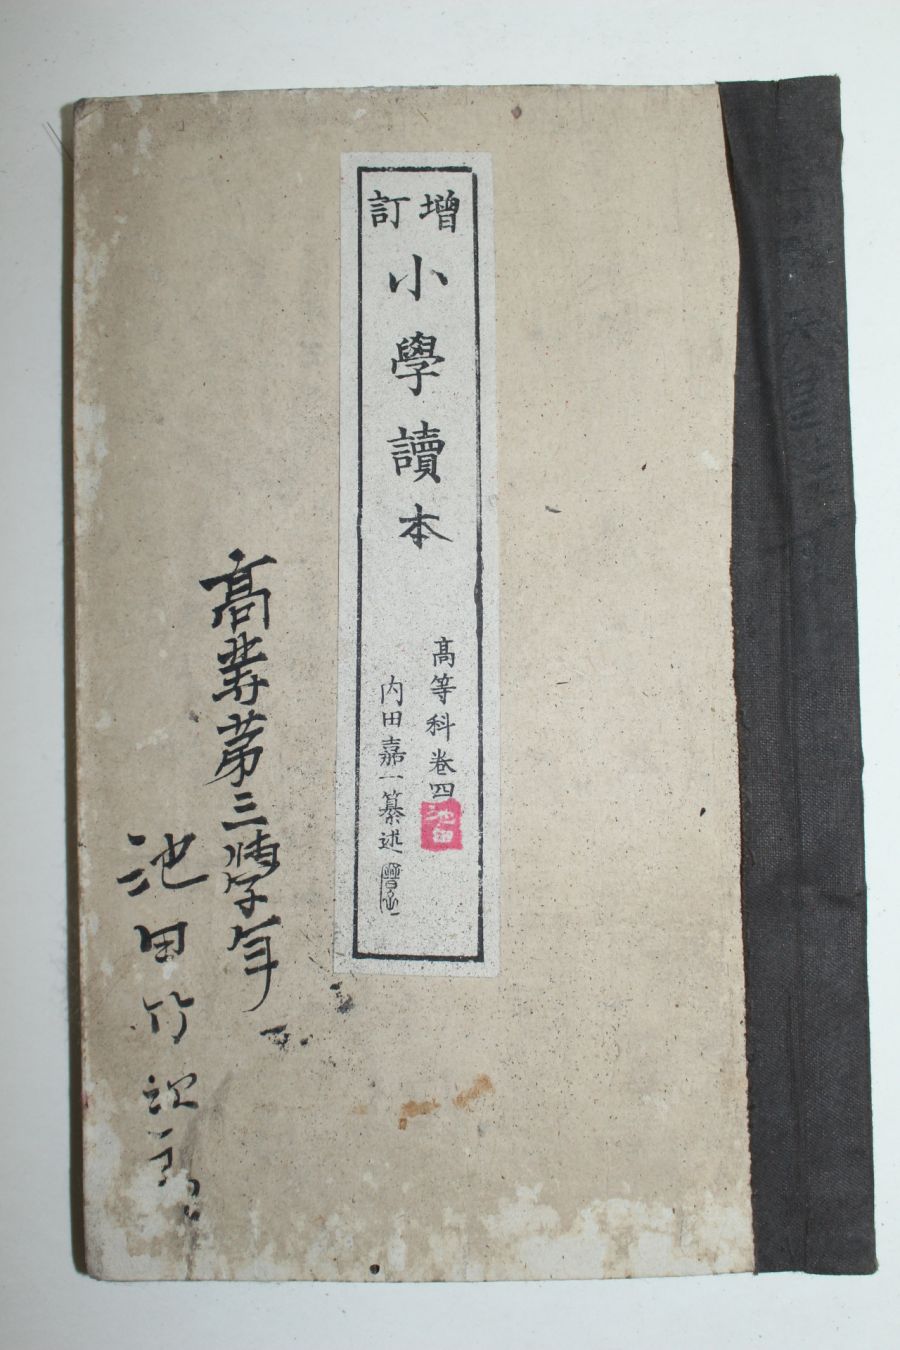 增訂
小學讀本
高等科卷四
池田
内田嘉一纂述
高等第三學年
池田竹次郎